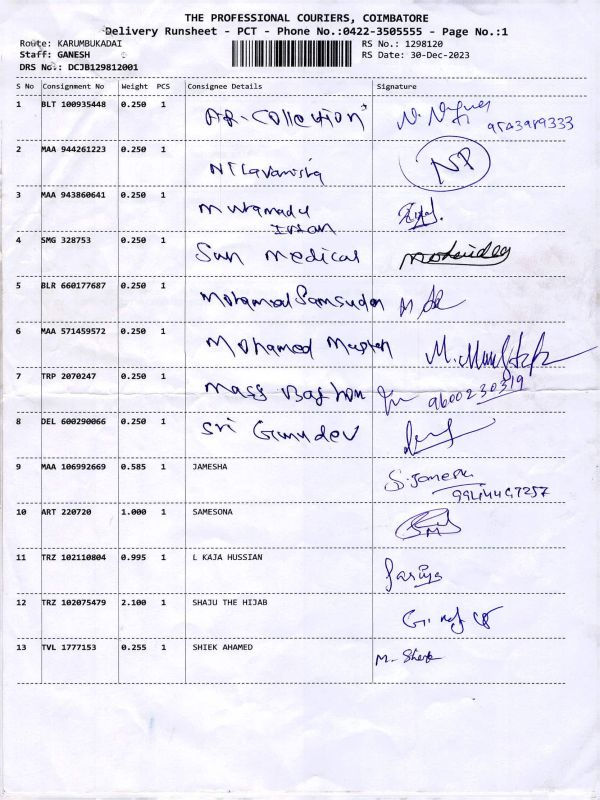 THE PROFESSIONAL COURIERS, COIMBATORE
Delivery Runsheet - PCT - Phone No.:0422-3505555 - Page No.:1
Route: KARUMBUKADAI RS No.: 1298120
Staff: GANESH RS Date: 30-Dec-2023
DRS No.: DCJB129812001
S No Consignment No Weight PCS Consignee Details Signature
1 BLT 100935448 0.250 1 AR-Collection
2 MAA 944261223 0.250 1 NP
3 MAA 943860641 0.250 1
Irfan
4 SMG 328753 0.250 1 Sun medical
5 BLR 660177687 0.250 1 Mohamed Samsuden
6 MAA 571459572 0.250 1 Mohamed
7 TRP 2070247 0.250 1 Mass 9600230319
8 DEL 600290066 0.250 1 Sri Gurudev
9 MAA 106992669 0.585 1 JAMESHA
10 ART 220720 1.000 1 SAMESONA
11 TRZ 102110804 0.995 1 L KAJA HUSSIAN
12 TRZ 102075479 2.100 1 SHAJU THE HIJAB
13 TVL 1777153 0.255 1 SHIEK AHAMED